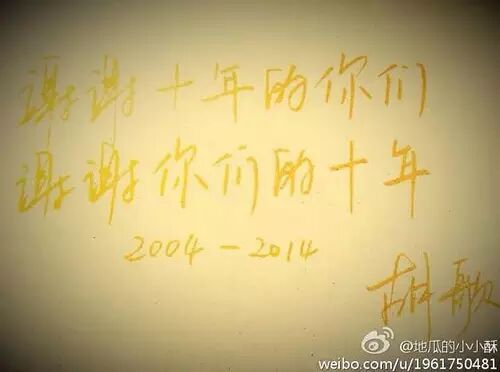 谢谢十年的你们
谢谢你们的十年
2004-2014
胡歌
@地瓜的小小酥
weibo.com/u/1961750481